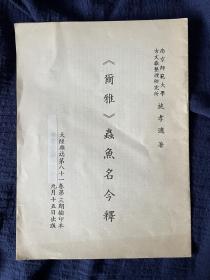 南京師範大學
古文獻整理研究所
施孝適 著
《爾雅》蟲魚名今釋
大陸雜誌第八十一卷第三期抽印本
九月十五日出版